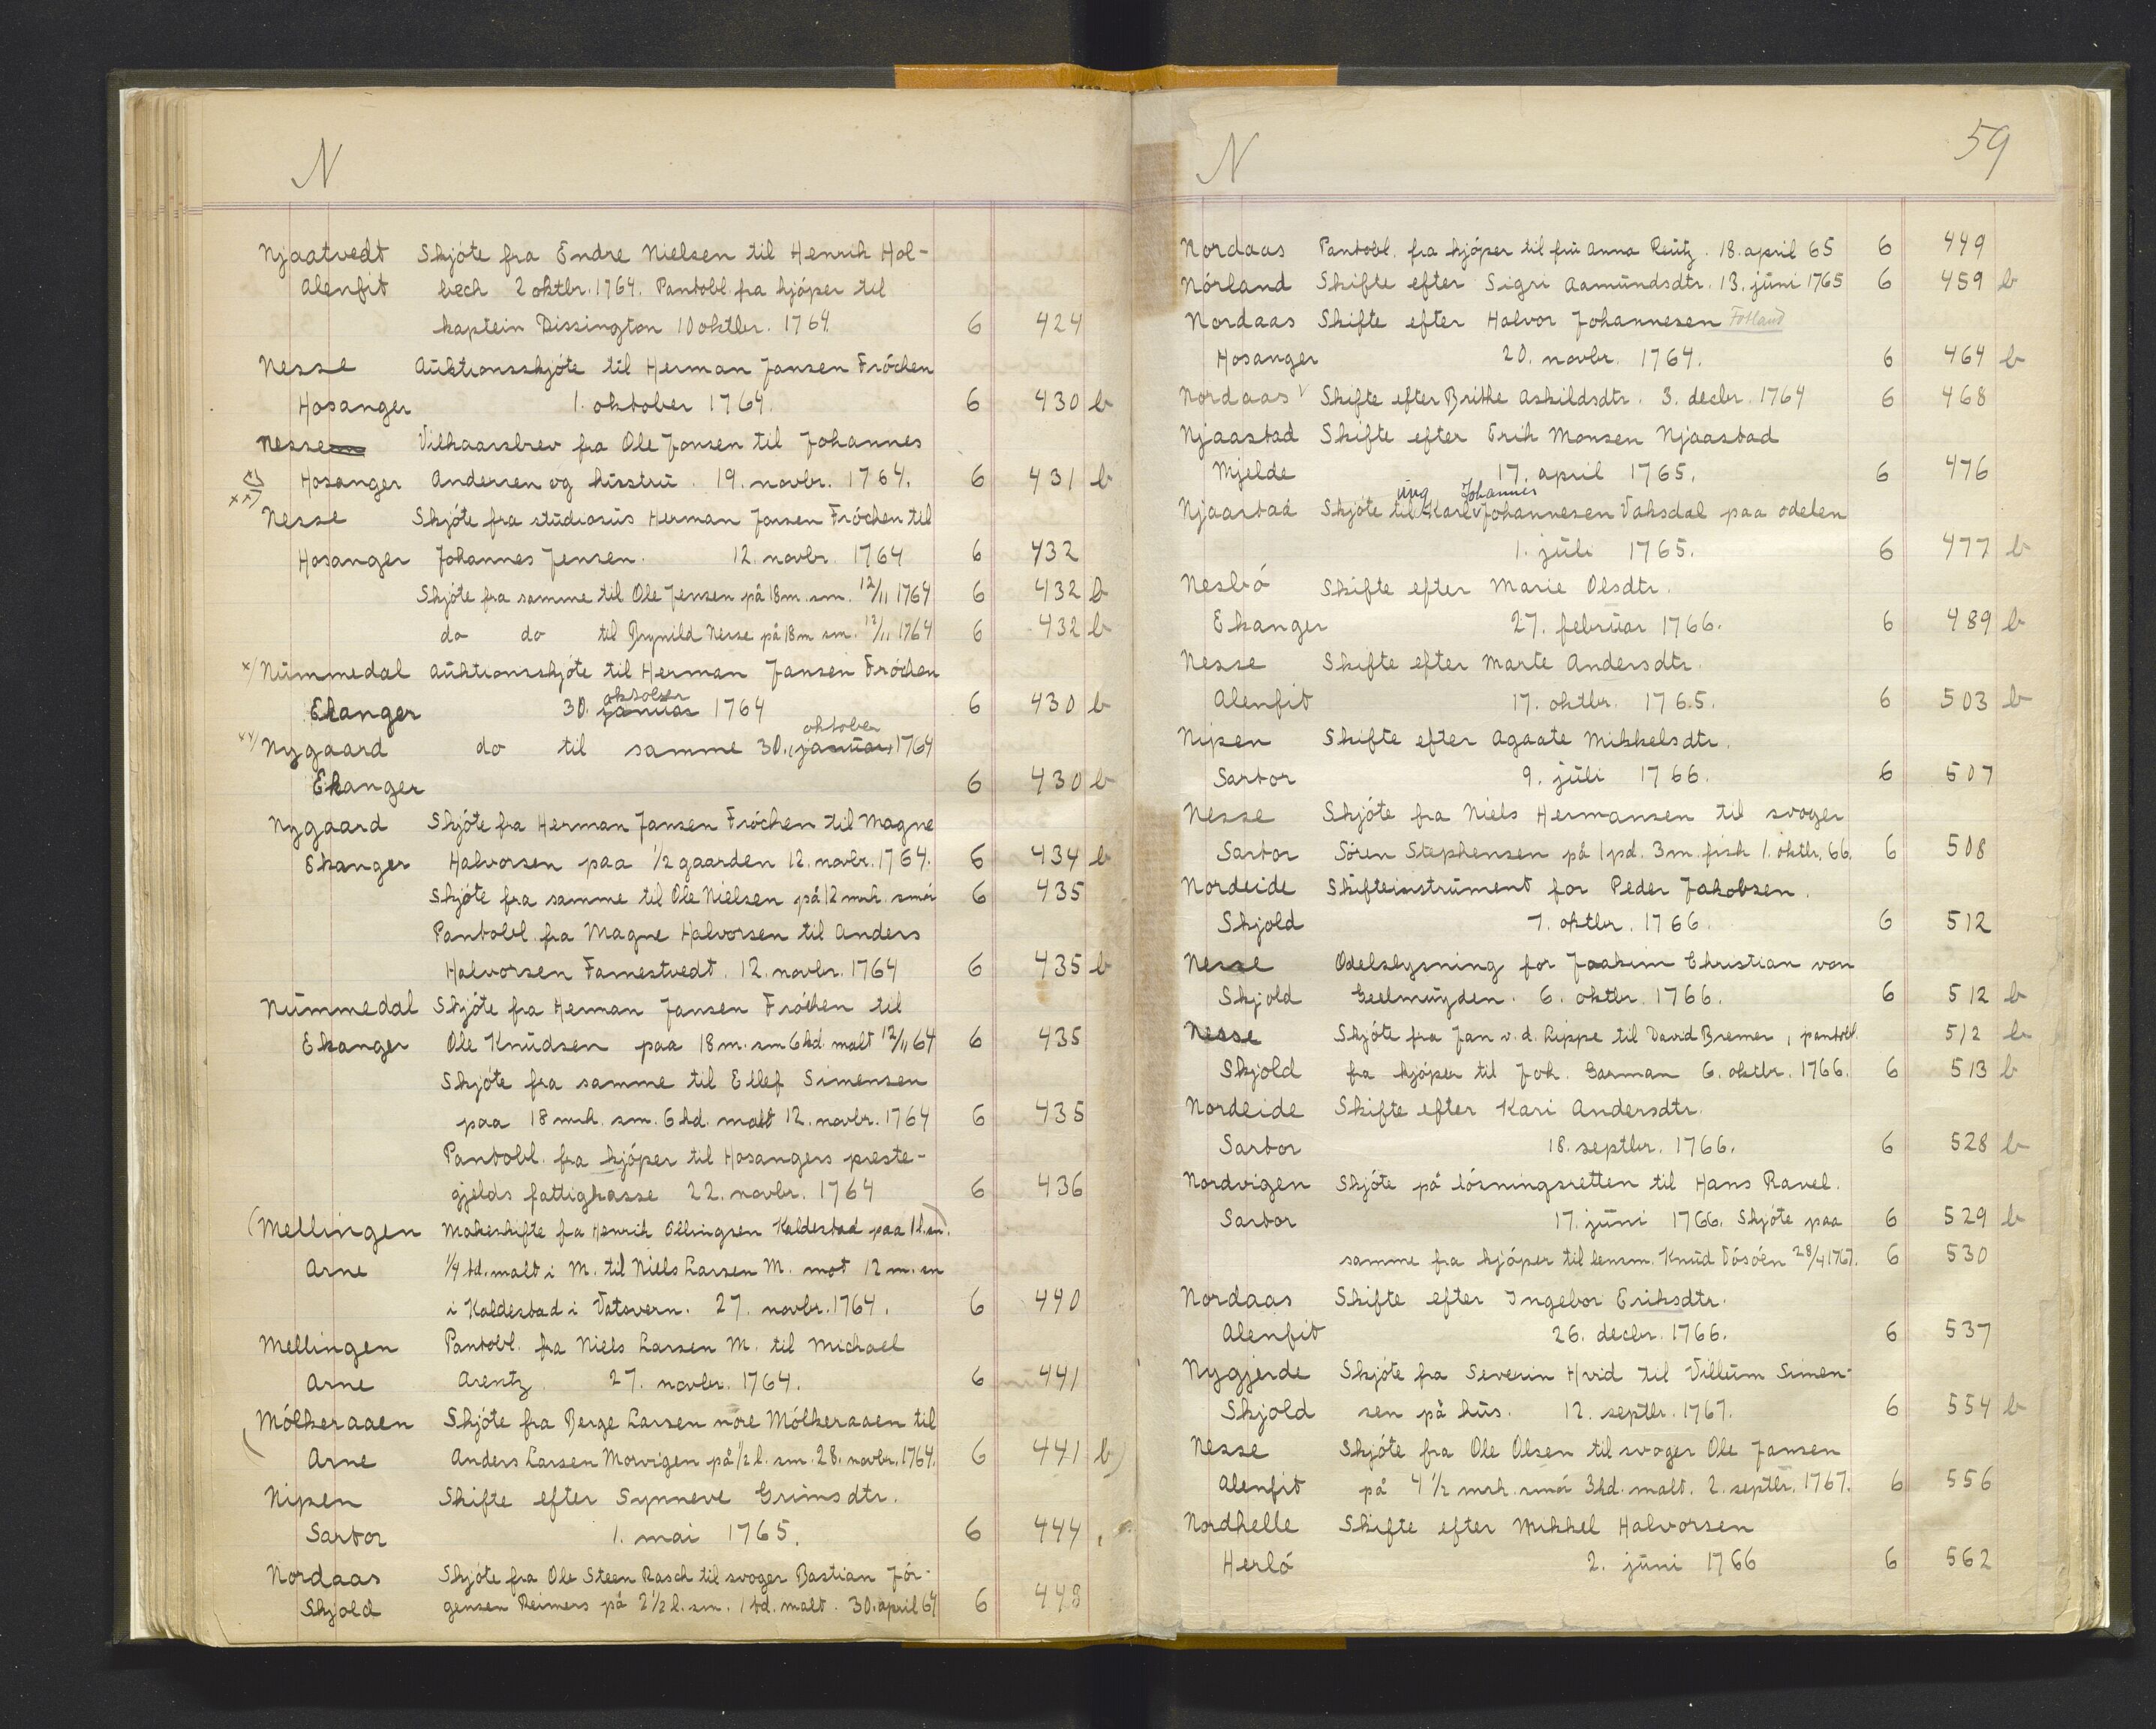 N
Njaatvedt Skjöte fra Endre Nielsen til Henrik Hol-
Alenfit bech 2 oktbr. 1764. Pantobl. fra kjöper til
kaptein Dissington 10 oktbr. 1764 6 424
Nesse Auktionsskjöte til Herman Jansen Fröchen
Hosanger 1. oktober 1764. 6 430 b
Nesse Vilkaarsbrev fra Ole Jonsen til Johannes
Hosanger Andersen og hustru. 19. novbr. 1764. 6 431 b
xx) Nesse Skjöte fra studiosus Herman Jansen Fröchen til
Hosanger Johannes Jensen. 12. novbr. 1764 6 432
Skjöte fra samme til Ole Jensen på 18 m. sm. 12/11 1764 6 432 b
do do til Brynild Nesse på 18 m sm. 12/11 1764 6 432 b
x) Nummedal Auktionsskjöte til Herman Jansen Fröchen
Ekanger 30. januar oktober 1764 6 430 b
xx) Nygaard do til samme 30. januar oktober 1764
Ekanger 6 430 b
Nygaard Skjöte fra Herman Jansen Fröchen til Magne
Ekanger Halvorsen paa 1/2 gaarden 12. novbr. 1764. 6 434 b
Skjöte fra samme til Ole Nielsen på 12 mrk. smör 6 435
Pantobl. fra Magne Halvorsen til Anders
Halvorsen Famestvedt. 12. novbr. 1764 6 435 b
Nummedal Skjöte fra Herman Jansen Fröchen til
Ekanger Ole Knudsen paa 18 m. sm 6 kd. malt 12/11 64 6 435
Skjöte fra samme til Ellef Simensen
paa 18 mrk. sm. 6 kd. malt 12. novbr. 1764 6 435
Pantobl. fra kjöper til Hosangers preste-
gjelds fattigkasse 22. novbr. 1764 6 436
(Mellingen Makeskifte fra Henrik Ellingsen Kaldestad paa 1 l. sm).
Arne 1/4 td. malt i M. til Niels Larsen M. mot 12 m. sm
i Kaldestad i Vatsvern. 27. novbr. 1764. 6 440
Mellingen Pantobl. fra Niels Larsen M. til Michael
Arne Arentz. 27. novbr. 1764. 6 441
Mölkeraaen Skjöte fra Berge Larsen nöre Mölkeraaen til
(Arne Anders Larsen Morvigen på 1/2 l. sm. 28. novbr. 1764. 6 441 b)
Nipen Skifte efter Synneve Grimsdtr.
Sartor 1. mai 1765. 6 444
Nordaas Skjöte fra Ole Steen Rasch til svoger Bastian Jör-
Skjold gensen Reimers på 2 1/2 l. sm. 1 td. malt. 30. april 64 6 448
N 59
Nordaas Pantobl. fra kjöper til fru Anna Reutz. 18. april 65 6 449
Nörland Skifte efter Sigri Aamundsdtr. 13. juni 1765 6 459 b
Nordaas Skifte efter Halvor Johannesen Fotland
Hosanger 20. novbr. 1764. 6 464 b
Nordaas v Skifte efter Brithe Askildsdtr. 3. decbr. 1764 6 468
Njaastad Skifte efter Erik Monsen Njaastad
Mjelde 17. april 1765. 6 476
ung Johannes
Njaastad Skjöte til Karl v Johannesen Vaksdal paa odelen
1. juli 1765. 6 477 b
Nesbö Skifte efter Marie Olsdtr.
Ekanger 27. februar 1766. 6 489 b
Nesse Skifte efter Marte Andersdtr.
Alenfit 17. oktbr. 1765. 6 503 b
Nipen Skifte efter Agaate Mikkelsdtr.
Sartor 9. juli 1766. 6 507
Nesse Skjöte fra Niels Hermansen til svoger
Sartor Sören Stephensen på 1 pd. 3 m. fisk 1. oktbr. 66. 6 508
Nordeide Skifteinstrument for Peder Jakobsen.
Skjold 7. oktbr. 1766. 6 512
Nesse Odelslysning for Joakim Christian von
Skjold Geelmuyden. 6. oktbr. 1766. 6 512 b
Nesse Skjöte fra Jan v. d. Lippe til David Bremer, pantobl. 512 b
Skjold fra kjöper til Joh. Garman 6. oktbr. 1766. 6 513 b
Nordeide Skifte efter Kari Andersdtr.
Sartor 18. septbr. 1766. 6 528 b
Nordvigen Skjöte på lösningsretten til Hans Ravel.
Sartor 17. juni 1766. Skjöte paa 6 529 b
samme fra kjöper til lensm. Knud Tösöen 28/4 1767. 6 530
Nordaas Skifte efter Ingebor Eriksdtr.
Alenfit 26. decbr. 1766. 6 537
Nygjerde Skjöte fra Severin Hvid til Villum Simen-
Skjold sen på hus. 12. septbr. 1767. 6 554 b
Nesse Skjöte fra Ole Olsen til svoger Ole Jansen
Alenfit på 4 1/2 mrk. smör 3 kd. malt. 2. septbr. 1767. 6 556
Nordhelle Skifte efter Mikkel Halvorsen
Herlö 2. juni 1766 6 562